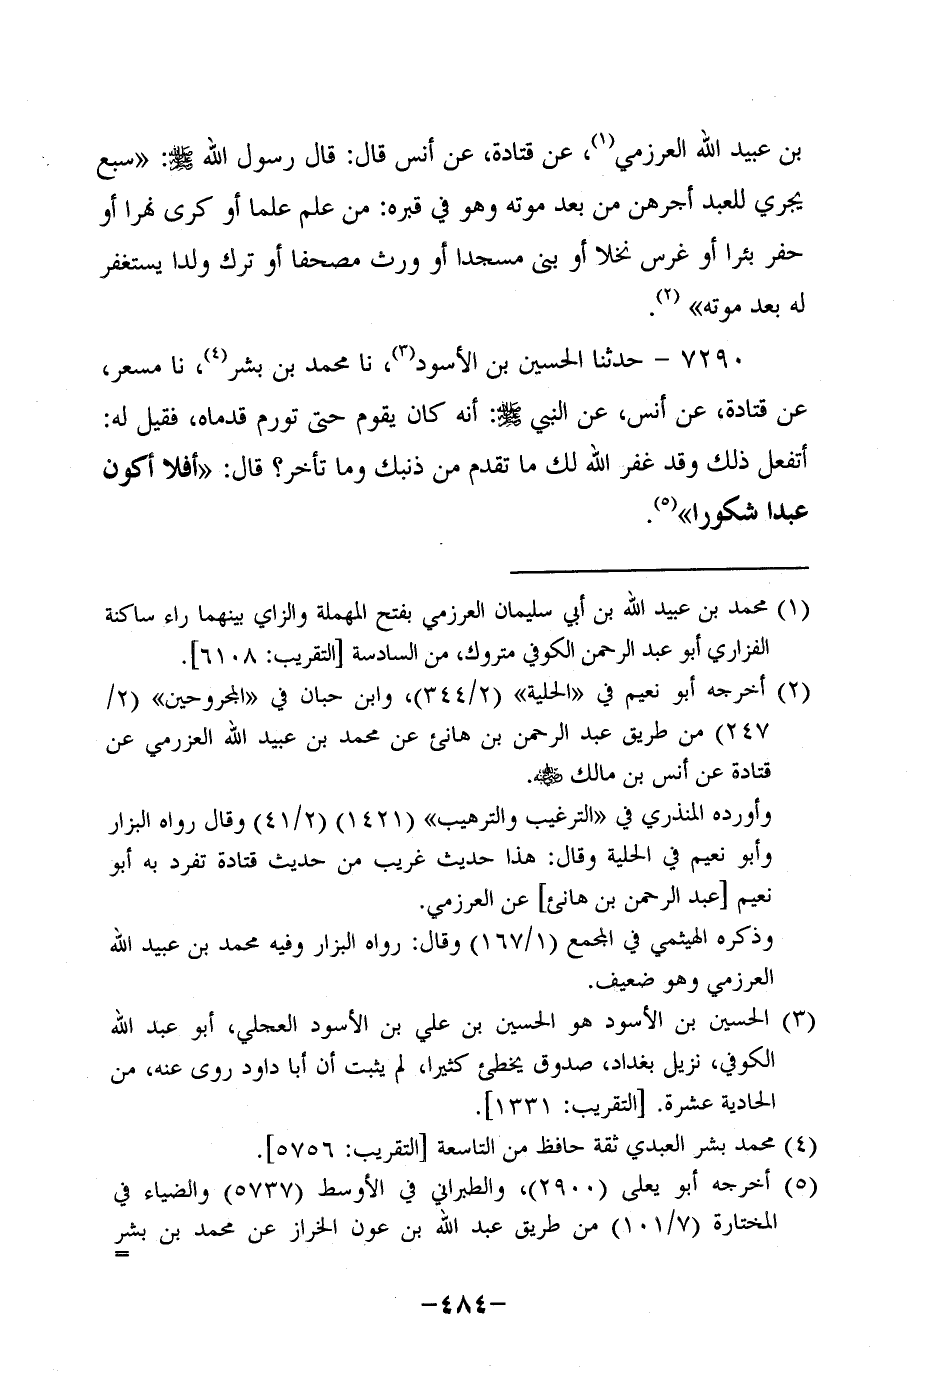 بن عبيد الله العرزمي(١)، عن قتادة، عن أنس قال: قال رسول الله ﷺ: «سبع
يجري للعبد أجرهن من بعد موته وهو في قبره: من علم علما أو كرى نهرا أو
حفر بئرا أو غرس نخلا أو بنى مسجدا أو ورث مصحفا أو ترك ولدا يستغفر
له بعد موته» (٢).
٧٢٩٠ - حدثنا الحسين بن الأسود(٣)، نا محمد بن بشر(٤)، نا مسعر،
عن قتادة، عن أنس، عن النبي ﷺ: أنه كان يقوم حتى تورم قدماه، فقيل له:
أتفعل ذلك وقد غفر الله لك ما تقدم من ذنبك وما تأخر؟ قال: «أفلا أكون
عبدا شكورا»(٥).
(١) محمد بن عبيد الله بن أبي سليمان العرزمي بفتح المهملة والزاي بينهما راء ساكنة
الفزاري أبو عبد الرحمن الكوفي متروك، من السادسة [التقريب: ٦١٠٨].
(٢) أخرجه أبو نعيم في «الحلية» (٣٤٤/٢)، وابن حبان في «المجروحين» (٢/
٢٤٧) من طريق عبد الرحمن بن هانئ عن محمد بن عبيد الله العزرمي عن
قتادة عن أنس بن مالك رضي الله عنه.
وأورده المنذري في «الترغيب والترهيب» (١٤٢١) (٤١/٢) وقال رواه البزار
وأبو نعيم في الحلية وقال: هذا حديث غريب من حديث قتادة تفرد به أبو
نعيم [عبد الرحمن بن هانئ] عن العرزمي.
وذكره الهيثمي في المجمع (١٦٧/١) وقال: رواه البزار وفيه محمد بن عبيد الله
العرزمي وهو ضعيف.
(٣) الحسين بن الأسود هو الحسين بن علي بن الأسود العجلي، أبو عبد الله
الكوفي، نزيل بغداد، صدوق يخطئ كثيرا، لم يثبت أن أبا داود روى عنه، من
الحادية عشرة. [التقريب: ١٣٣١].
(٤) محمد بشر العبدي ثقة حافظ من التاسعة [التقريب: ٥٧٥٦].
(٥) أخرجه أبو يعلى (٢٩٠٠)، والطبراني في الأوسط (٥٧٣٧) والضياء في
المختارة (١٠١/٧) من طريق عبد الله بن عون الخراز عن محمد بن بشر
=
-٤٨٤-